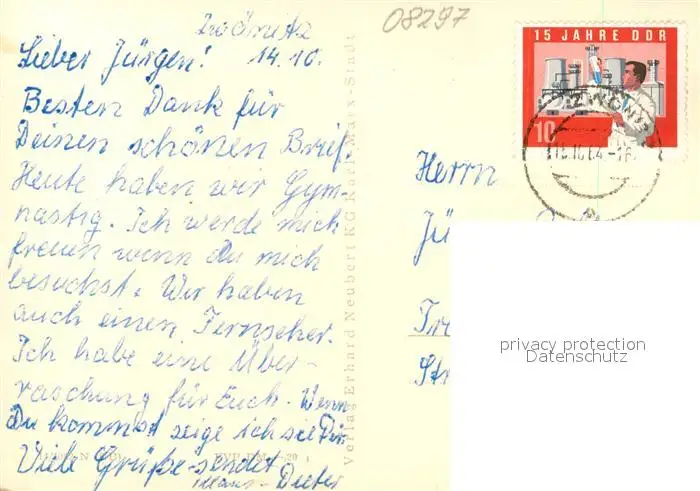 Zschmitz
08297
Lieber Jürgen! 14.10.
Besten Dank für
Deinen schönen Brief.
Heute haben wir Gym-
nastig. Ich werde mich
freuen wenn Du mich
besuchst. Wir haben
auch einen Fernseher.
Ich habe eine Über-
raschung für Euch. Wenn
Du kommst zeige ich sie Dir.
Viele Grüße sendet
Klaus-Dieter
Verlag Erhard Neubert KG Karl-Marx-Stadt
15 JAHRE DDR
10
Herrn
Jü
Str
privacy protection
Datenschutz